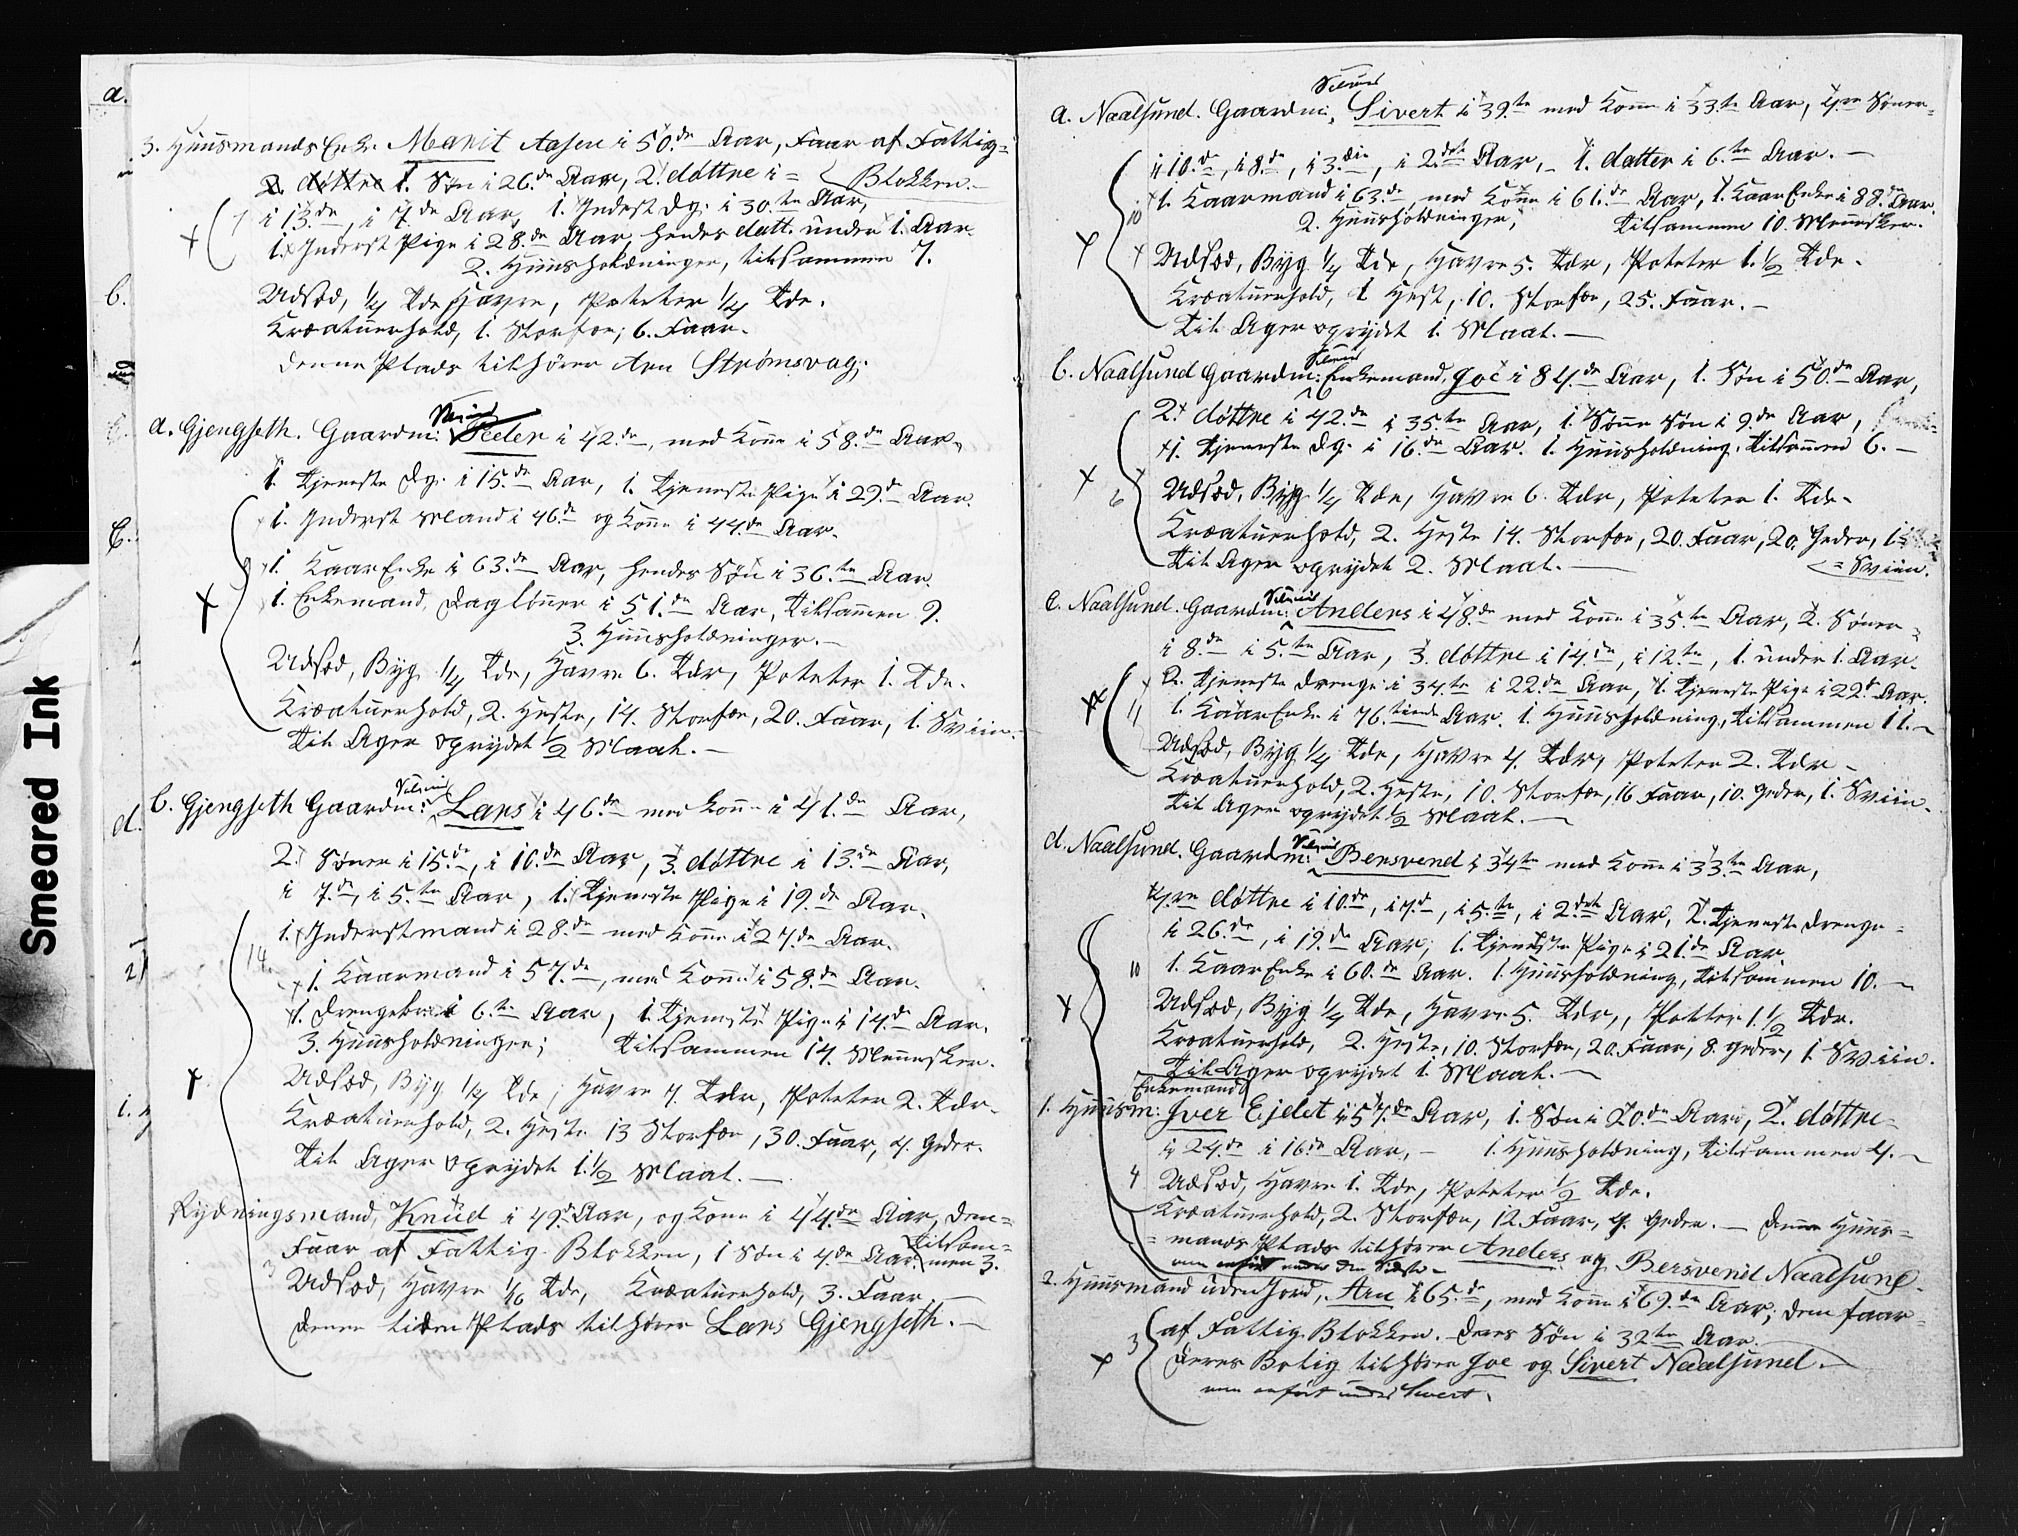 a.
3. Huusmands Enke Marit Aasen i 50.de Aar, Faar af Fattig=
2. døttre 1. Søn i 26.de Aar, 2. døttre i = Blokken.
i 13.de, i 7.de Aar, 1. Inderst Dg. i 30.te Aar,
7 1. Inderst Pige i 28.de Aar, hendes datt. under 1. Aar.
2. Huusholdninger, tilsammen 7.
b.
Udsæd, 1/4 Tde Havre, Poteter 1/4 Tde.
Kreaturhold, 1. Storfæe; 6. Faar.
denne Plads tilhører Arn Strømsvag.
a. Gjengseth. Gaardm: Peeter i 42.de, med Kone i 58.de Aar,
1. Tjeneste Dg. i 15.de Aar, 1. Tjeneste Pige i 29.de Aar.
1. Inderst Mand i 46.de og Kone i 44.de Aar.
9 1. Kaar Enke i 63.de Aar, hendes Søn i 36.te Aar.
1. Enkemand, Dagløner i 51.de Aar, Tilsammen 9.
3. Huusholdninger.
Udsæd, Byg 1/4 Tde, Havre 6. Tdr, Poteter 1. Tde.
Kreaturhold, 2. Heste, 14. Storfæe, 20. Faar, 1. Sviin.
Til Ager oprydet 1/2 Maal.
d.
b. Gjengseth Gaardm: Selveier Lars i 46.de med Kone i 41.de Aar,
2. Sønner i 15.de, i 10.de Aar, 3. døttre i 13.de Aar,
i 7.de, i 5.te Aar, 1. Tjeneste Pige i 19.de Aar.
1. Inderstmand i 28.de med Kone i 27.de Aar.
14. 1. Kaarmand i 57.de, med Kone i 58.de Aar.
1. Drengebarn i 6.te Aar, 1. Tjeneste Pige i 14.de Aar.
3. Huusholdninger; Tilsammen 14. Mennesker.
Udsæd, Byg 1/4 Tde, Havre 7. Tdr, Poteter 2. Tdr.
Kreaturhold, 2. Heste 13 Storfæe, 30. Faar, 4. Geder.
Til Ager oprydet 1.1/2 Maal.
Rydningsmand, Knud i 49.de Aar, og Kone i 44.de Aar, dem=
Faar af Fattig Blokken, 1 Søn i 4.de Aar. tilsam=
men 3.
3 Udsæd, Havre 1/8 Tde, Kreaturhold, 3. Faar.
denne liden Plads tilhører Lars Gjengseth.
Selveier
a. Naalsund. Gaardm. Sivert i 39.te med Kone i 33.te Aar, 4.re Sønner=
i 10.de, i 8.de, i 3.die, i 2.det Aar, 1. datter i 6.te Aar.
10 1. Kaarmand i 63.de, med Kone i 61.de Aar, 1. Kaar Enke i 88.de Aar.
2. Huusholdninger, tilsammen 10. Mennesker.
Udsæd, Byg 1/4 Tde, Havre 5. Tdr, Poteter 1.1/2 Tde.
Kreaturhold, 1 Hest, 10. Storfæe, 25. Faar.
Til Ager oprydet 1. Maal.
Selveier
b. Naalsund Gaardm: Enkemand, Joe i 84.de Aar, 1. Søn i 50.de Aar,
2. døttre i 42.de i 35.te Aar, 1. Sønne Søn i 9.de Aar,
1. Tjeneste Dg. i 16.de Aar. 1. Huusholdning. Tilsammen 6.
6 Udsæd, Byg 1/4 Tde, Havre 6. Tdr, Poteter 1. Tde.
Kreaturhold, 2. Heste 14. Storfæe, 20. Faar, 20. Geder, 1
Til Ager oprydet 2. Maal. = Sviin.
Selveier
c. Naalsund. Gaardm: Anders i 48.de med Kone i 35.te Aar, 2. Sønner=
i 8.de i 5.te Aar, 3. døttre i 14.de, i 12.te, 1. under 1. Aar.
2. Tjeneste Drenge i 34.te i 22.de Aar, 1. Tjeneste Pige i 22.de Aar.
11 1. Kaar Enke i 76.tiende Aar. 1. Huusholdning, tilsammen 11.
Udsæd, Byg 1/4 Tde, Havre 4. Tdr, Poteter 2. Tdr
Kreaturhold, 2. Heste, 10. Storfæe, 16 Faar, 10. Geder, 1. Sviin.
Til Ager oprydet 1/2 Maal.
Selveier
d. Naalsund. Gaardm: Bersvend i 34te med Kone i 33.te Aar,
4.re døttre i 10.de, i 7.de, i 5.te, i 2.det Aar, 2. Tjeneste Drenge=
i 26.de, i 19.de Aar; 1. Tjeneste Pige i 21.de Aar.
10 1. Kaar Enke i 60.de Aar. 1. Huusholdning, tilsammen 10.
Udsæd, Byg 1/4 Tde, Havre 5. Tdr, Potter 1 1/2 Tde.
Kreaturhold, 2. Heste, 10. Storfæe, 20. Faar, 8. Geder, 1. Sviin.
Til Ager oprydet 1. Maal.
Enkemand
1. Huusm: Iver Ejelet i 57.de Aar, 1. Søn i 20.de Aar, 2. døttre=
i 24.de i 16.de Aar, 1. Huusholdning, tilsammen 4.
4 Udsæd, Havre 1. Tde, Poteter 1/2 Tde.
Kreaturhold, 2. Storfæe, 12. Faar, 4. Geder. denne Huus=
= mands Plads tilhører Anders og Bersvend Naalsund.
nu anført under den Sidste
2. Huusmand uden Jord, Arn i 65.de, med Kone i 69.de Aar; dem faar=
3 af Fattig Blokken. deres Søn i 32te Aar.
deres Bolig tilhører Joe og Sivert Naalsund.
nu anført under Sivert.
Smeared Ink